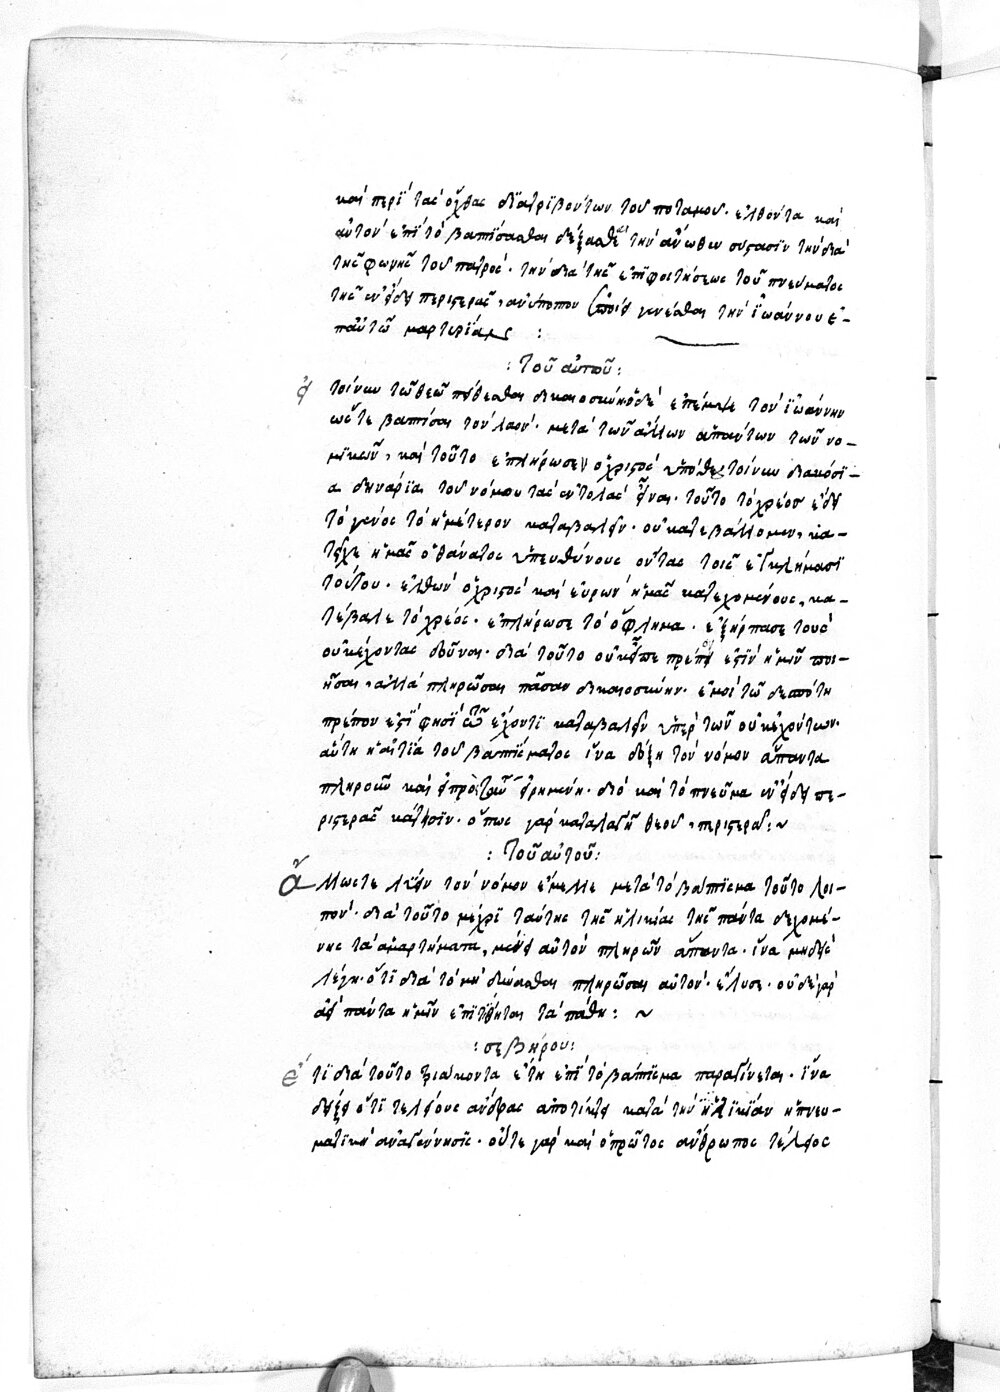 καὶ περὶ τὰς ὄχθας διατριβόντων τοῦ ποταμοῦ· ἐλθόντα καὶ
αὐτὸν ἐπὶ τὸ βαπτίσασθαι δέξασθαι τὴν ἄνωθεν σύστασιν τὴν διὰ
τῆς φωνῆς τοῦ πατρός· τὴν διὰ τῆς ἐπιφοιτήσεως τοῦ πνεύματος
τῆς ἐν εἴδει περιστερᾶς, ἀνύποπτον γενέσθαι τὴν ἰωάννου ἐ-
π' αὐτῷ μαρτυρίαν :
: Τοῦ αὐτοῦ :
εἰ τοίνυν τῷ θεῷ πείθεσθαι δικαιοσύνη ὁ δὲ ἔπεμψε τὸν ἰωάννην
ὥστε βαπτίσαι τὸν λαόν· μετὰ τῶν ἄλλων ἁπάντων τῶν νο-
μικῶν, καὶ τοῦτο ἐπλήρωσεν ὁ χριστός· ὑπόθες τοίνυν διακόσι-
α δηνάρια τοῦ νόμου τὰς ἐντολὰς εἶναι· τοῦτο τὸ χρέος ἔδει
τὸ γένος τὸ ἡμέτερον καταβαλεῖν· οὐ κατεβάλλομεν, κα-
τεῖχε ἡμᾶς ὁ θάνατος ὑπευθύνους ὄντας τοῖς ἐγκλήμασι
τούτου· ἐλθὼν ὁ χριστὸς καὶ εὑρὼν ἡμᾶς κατεχομένους, κα-
τέβαλε τὸ χρέος· ἐπλήρωσε τὸ ὄφλημα· ἐξήρπασε τοὺς
οὐκ ἔχοντας δοῦναι· διὰ τοῦτο οὐκ εἶπε πρέπον ἐστὶν ἡμῖν ποι-
ῆσαι, ἀλλὰ πληρῶσαι πᾶσαν δικαιοσύνην· ἐμοὶ τῷ δεσπότη
πρέπον ἐστί φησὶ τῷ ἔχοντι καταβαλεῖν ὑπὲρ τῶν οὐκ ἐχόντων·
αὕτη ἡ αἰτία τοῦ βαπτίσματος ἵνα δόξη τὸν νόμον ἅπαντα
πληροῦν καὶ εἰρημένη· διὸ καὶ τὸ πνεῦμα ἐν εἴδει πε-
ριστερᾶς κάτεισιν· ὅπως γὰρ καταλαγῆ θεοῦ, περιστερά :~
: Τοῦ αὐτοῦ :
Ἄλλωστε λύειν τὸν νόμον ἔμελλε μετὰ τὸ βάπτισμα τοῦτο λοι-
πόν· διὰ τοῦτο μέχρι ταύτης τῆς ἡλικίας τῆς πάντα δεχομέ-
νης τὰ ἁμαρτήματα, μένει αὐτὸν πληρῶν ἅπαντα· ἵνα μηδεὶς
λέγη· ὅτι διὰ τὸ μὴ δύνασθαι πληρῶσαι αὐτόν· ἔλυσε· οὐδὲ γὰρ
ἀεὶ πάντα ἡμῖν ἐπιτίθηται τὰ πάθη : ~
: σεβήρου :
ἔτι διὰ τοῦτο τριάκοντα ἔτη ἐπὶ τὸ βάπτισμα παραγίνεται· ἵνα
δείξει ὅτι τελείους ἄνδρας ἀποτίκτει κατὰ τὴν ἡλικίαν ἡ πνευ-
ματικὴ ἀναγέννησις· οὔτε γὰρ καὶ ὁ πρῶτος ἄνθρωπος τέλειος